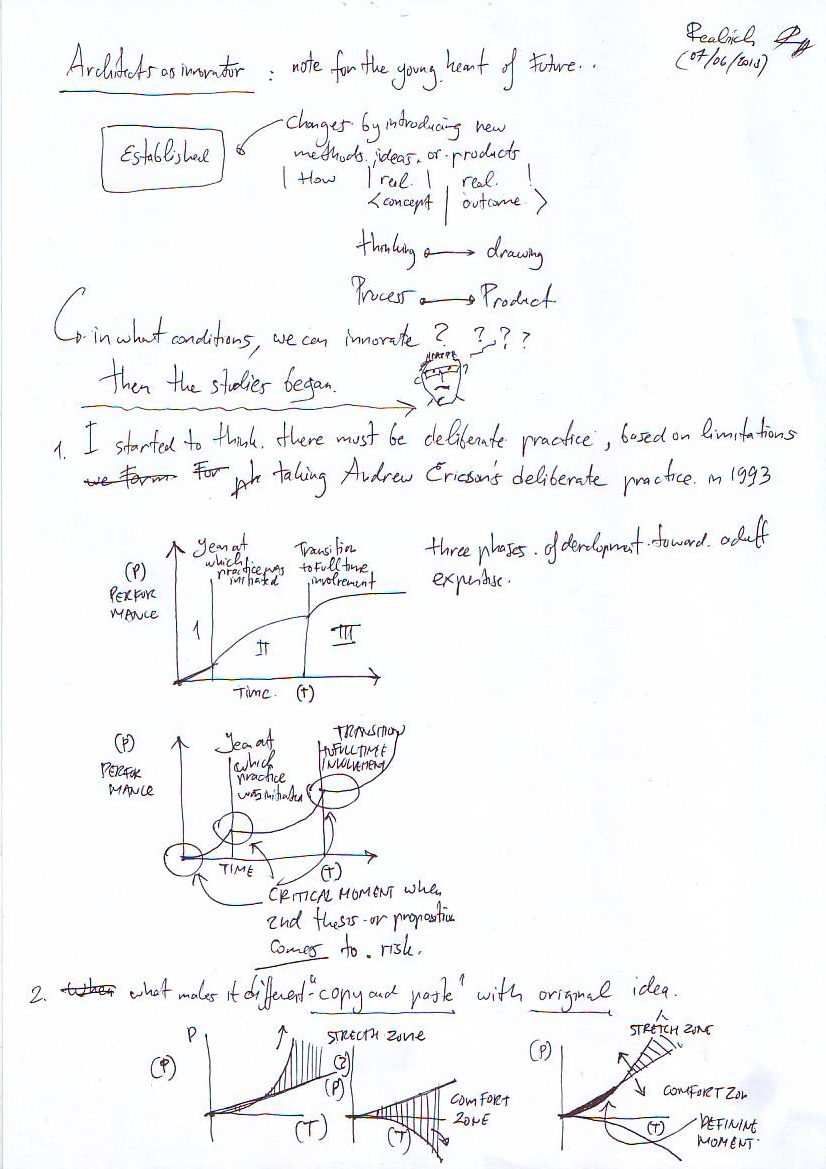 Realrich
(07/06/2013)
Architects as innovator : note for the young heart of Future..
Established
Changes by introducing new
methods, ideas, or products
How | real. | real. !
<concept | outcome. >
thinking → drawing
Process → Product
in what conditions, we can innovate ? ? ? ?
then the studies began.
1. I started to think. there must be deliberate practice, based on limitations
we form For taking Andrew Ericson's deliberate practice. in 1993
three phases. of development toward. adult
expertise.
(P)
PERFOR
MANCE
Year at
which
practice was
initiated
Transition
to Full time
involvement
1
II
III
Time. (t)
(P)
PERFOR
MANCE
Year at
which
practice
was initiated
TRANSITION
FULL TIME
INVOLVEMENT
TIME
(T)
CRITICAL MOMENT when
2nd thesis or proposition
comes to. risk.
2. When what makes it different "copy and paste" with original idea.
P
(P)
STRECTH ZONE
(2)
(P)
(T)
COMFORT
ZONE
(T)
(P)
STRETCH ZONE
COMFORT ZON
(T)
DEFINING
MOMENT.